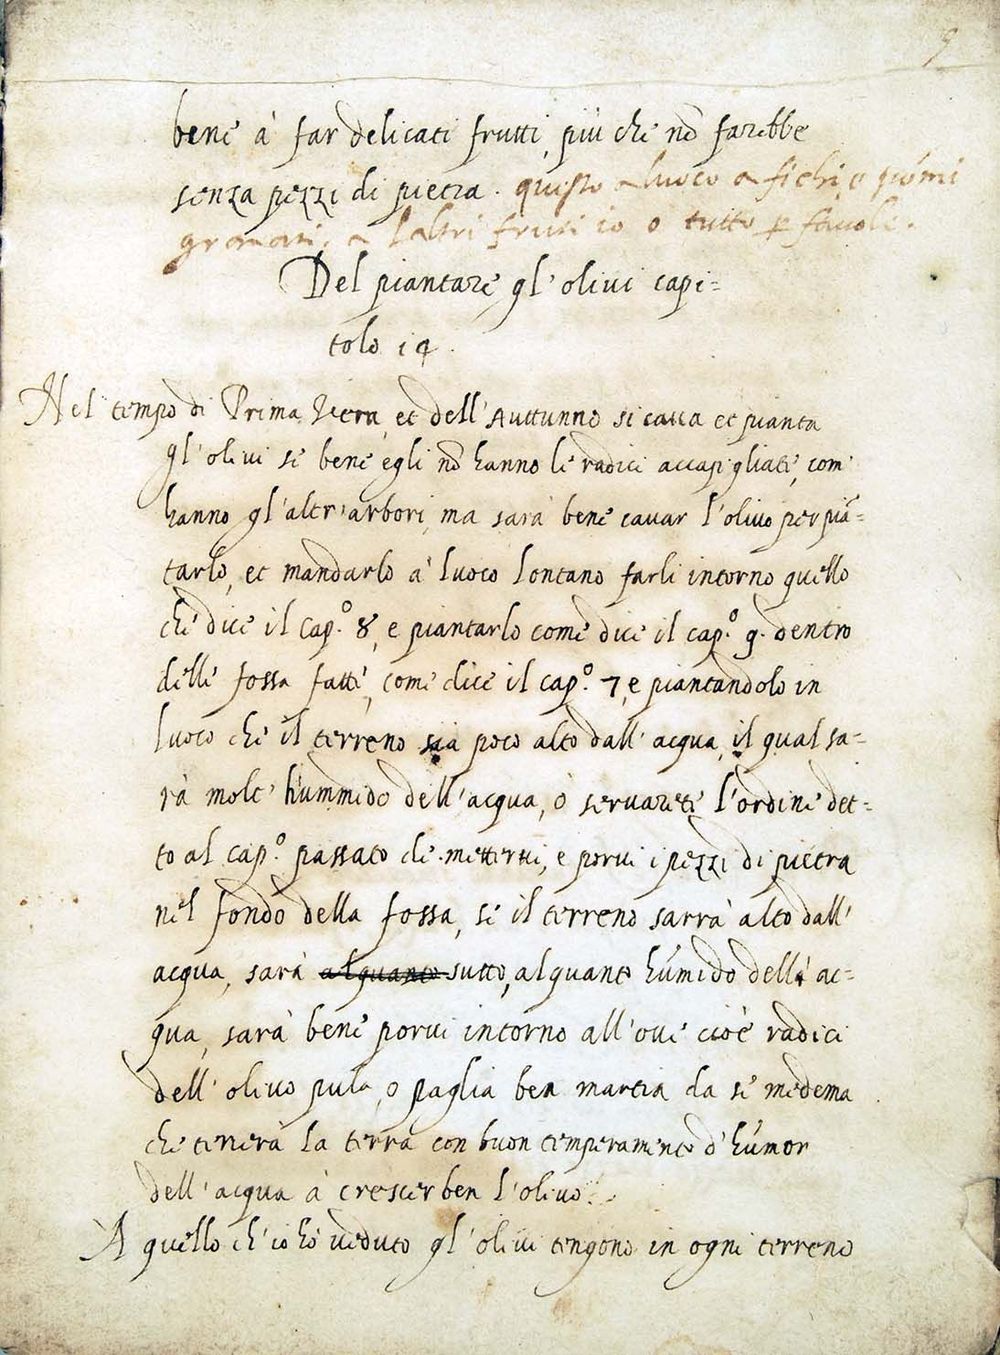 9
bene à far delicati frutti, più che nõ farebbe
senza pezzi di pietra. questo a luoco a fichi o pómi
granati, a laltri fruti io o tutto p favole.
Del piantare gl'olivi capi=
tolo 14.
Nel tempo di Prima Vera, et dell'Auttunno si caua et pianta
gl'olivi se bene egli nõ hanno le radici accapigliate, com'
hanno gl'altr'arbori, ma sarà bene cauar l'olivo per piã=
tarlo, et mandarlo a' luoco lontano farli intorno quello
che dice il Cap.º 8, e piantarlo come dice il cap.º 9. dentro
delle fossa fatte, come dice il cap.º 7, e piantandolo in
luoco che il terreno sia poco alto dall'acqua, il qual sa=
rà molt' hummido dell'acqua, ò servarete l'ordine det=
to al cap.º passato de metterui, e porui i pezzi di pietra
nel fondo della fossa, se il terreno sarrà alto dall'
acqua, sarà alquanto sutto, alquanto húmido dell' ac=
qua, sarà bene porui intorno all'ove cioè radici
dell' olivo pula, o paglia ben marcia da se medema
che tenerà la terra con buon temperamento d'húmor
dell'acqua à crescer ben l'olivo.
A quello ch'io hò veduto gl'olivi tengono in ogni terreno